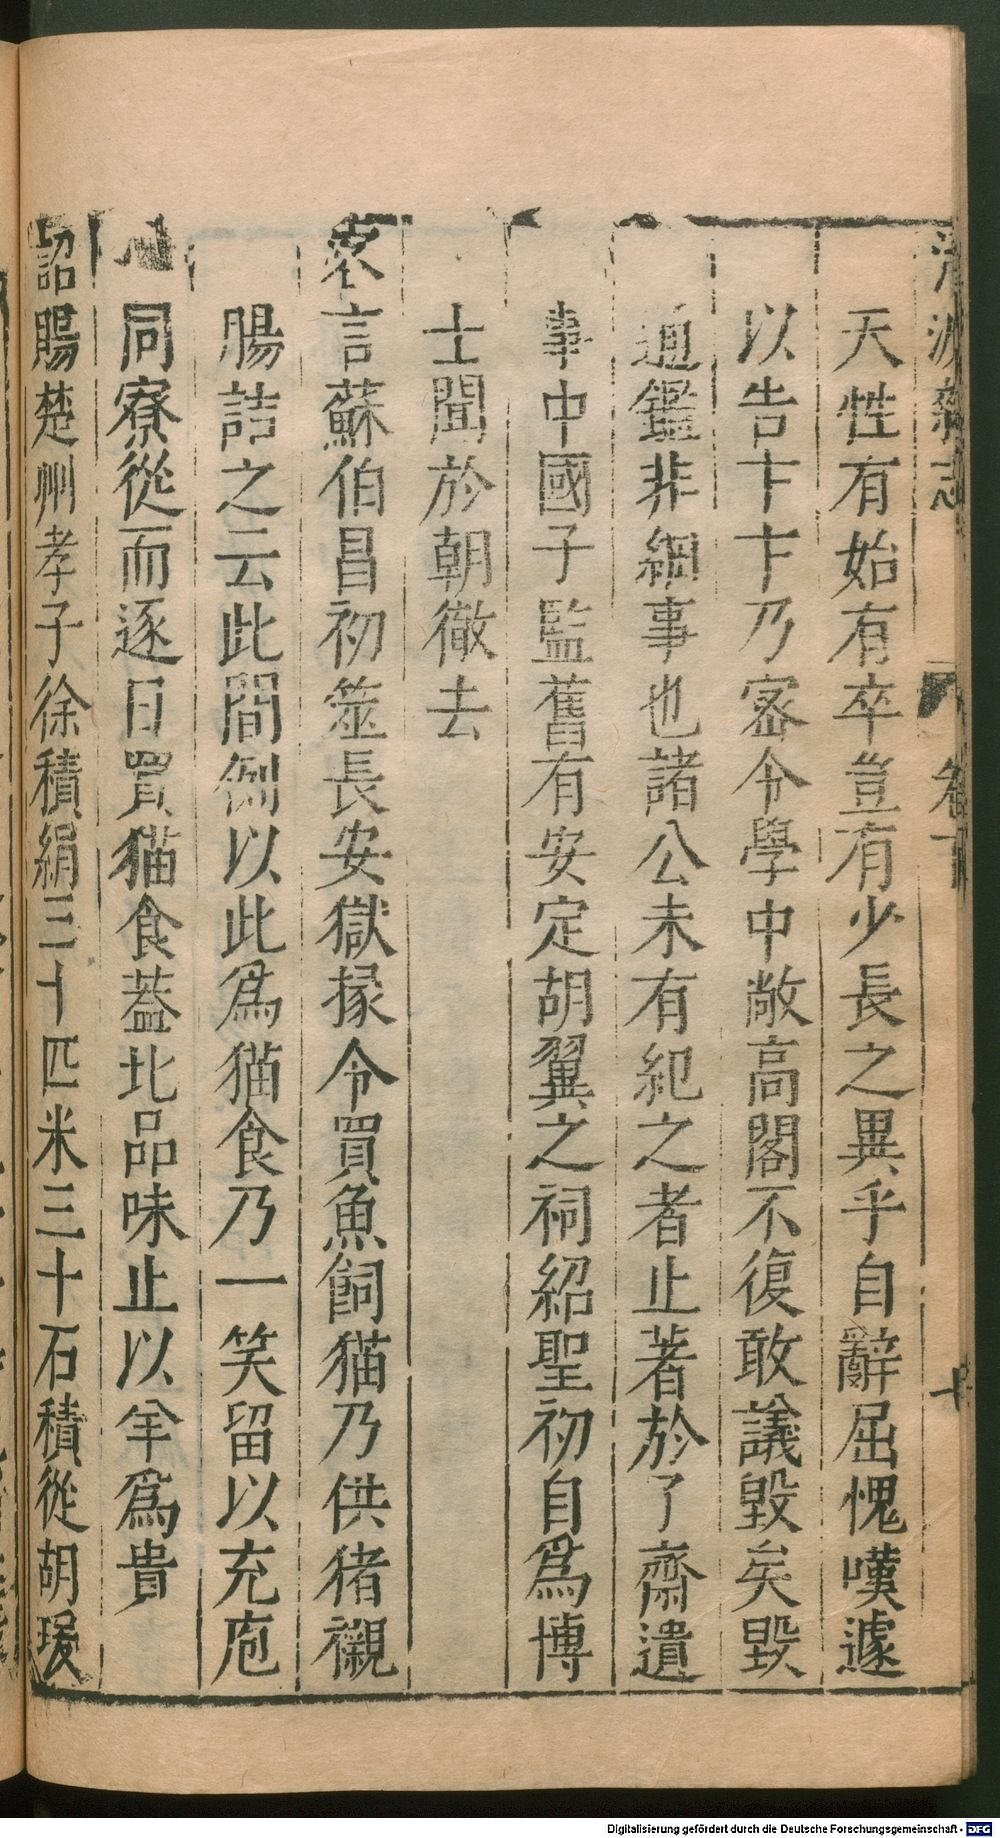 清波雜志 卷下 十
天性有始有卒豈有少長之異乎自辭屈愧嘆遽
以告卞卞乃宻令學中敞高閣不復敢議毀矣毀
通鑑非細事也諸公未有紀之者止著於了齋遺
事中國子監舊有安定胡翼之祠紹聖初自為博
士聞於朝徹去
客言蘇伯昌初筮長安獄掾令買魚飼猫乃供猪襯
腸詰之云此間例以此為猫食乃一笑留以充庖
同寮從而逐日買猫食葢北品味止以羊為貴
詔賜楚州孝子徐積絹三十匹米三十石積從胡瑗
Digitalisierung gefördert durch die Deutsche Forschungsgemeinschaft - DFG